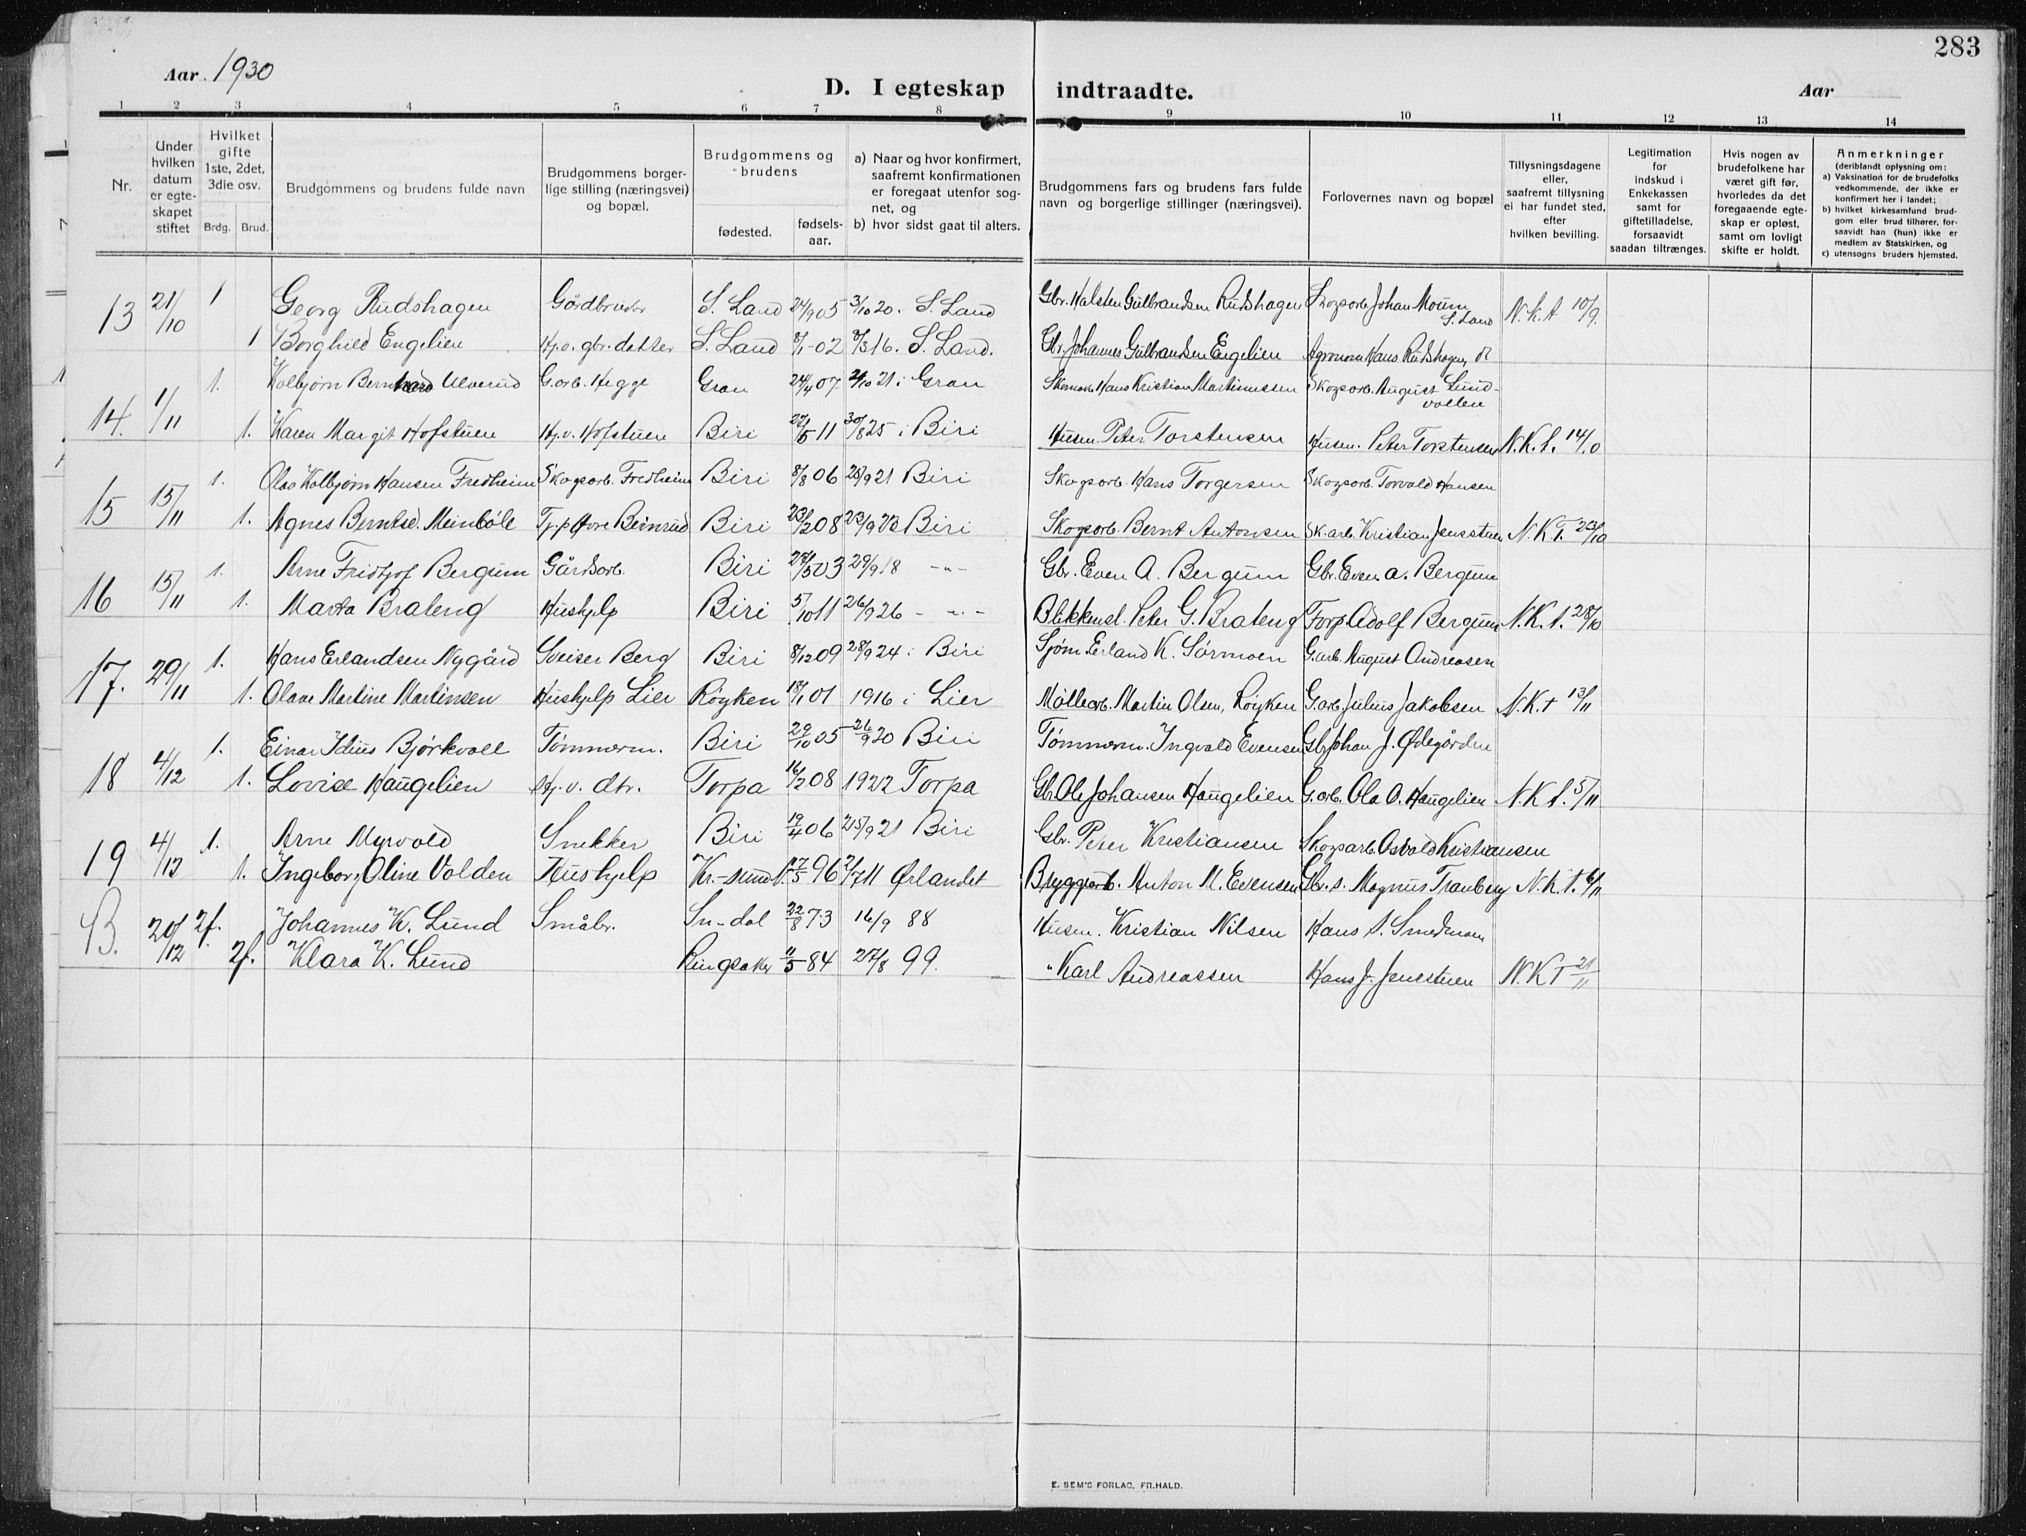 283
Aar 1930
D. I egteskap indtraadte.
Aar
1 2 3 4 5 6 7 8 9 10 11 12 13 14
Nr.
Under hvilken datum er egteskapet stiftet
Hvilket gifte 1ste, 2det, 3die osv.
Brdg. Brud.
Brudgommens og brudens fulde navn
Brudgommens borgerlige stilling (næringsvei) og bopæl.
Brudgommens og brudens
fødested.
fødselsaar.
a) Naar og hvor konfirmert, saafremt konfirmationen er foregaat utenfor sognet, og
b) hvor sidst gaat til alters.
Brudgommens fars og brudens fars fulde navn og borgerlige stillinger (næringsvei).
Forlovernes navn og bopæl
Tillysningsdagene eller, saafremt tillysning ei har fundet sted, efter hvilken bevilling.
Legitimation for indskud i Enkekassen samt for giftetilladelse, forsaavidt saadan tiltrænges.
Hvis nogen av brudefolkene har været gift før, hvorledes da det foregaaende egteskap er opløst, samt om lovligt skifte er holdt.
Anmerkninger (deriblandt oplysning om:
a) Vaksination for de brudefolks vedkommende, der ikke er konfirmert her i landet;
b) hvilket kirkesamfund brudgom eller brud tilhører, forsaavidt han (hun) ikke er medlem av Statskirken, og
c) utensogns bruders hjemsted.
13 21/10 1 Georg Rudshagen Gårdbruker S. Land 24/9 05 3/10 20. S. Land Gbr. Halsten Gulbrandsen Rudshagen Skogsarb. Johan Moum S. Land N.K.A 10/9
1 Borghild Engelien Hj.v. gbr. datter S. Land 8/1-02 16. S. Land. Gbr. Johannes Gulbrandsen Engelien Agronom Hans Rudshagen
14. 1/11 1. Kolbjørn Bernhard Ulverud G.arb. Hegge Gran 24/4 07 21 i Gran Hans Kristian Martinussen Skogsarb. August Lundvollen
1. Karen Margit Hofstuen Hj.v. Hofstuen Biri 11 30/8 25 i Biri Husm. Peter Torstensen Husm. Peter Torstensen N.K.t. 14/0
15 15/11 1. Olav Kolbjørn Hansen Fredheim Skogsarb. Fredheim Biri 8/8 06 25/9 21 Biri Skogsarb. Hans Torgersen Skogsarb. Torvald Hansen
1. Agnes Berntsd. Meinböle Biri 23/2 08 23/9 23 Biri Skogsarb. Bernt Antonsen Sk.arb. Kristian Jensstuen N.K.T. 23/10
16 15/11 1. Arne Fridtjof Bergum Gårdsarb. Biri 03 29/9 18 -"- Gbr. Even A. Bergum Gbr. Even A. Bergum
1. Marta Brateng Hushjelp Biri 5/10 11 26/9 26 - " - Blikkensl. Peter G. Brateng Forp. Adolf Bergum N.K.t. 28/10
17. 29/11 1. Hans Erlandsen Nygård Sveiser Berg Biri 8/12 09 28/9 24 i Biri Sjøm. Erland K. Sørmoen G.arb. August Andreasen
1. Olave Martine Martinsen Hushjelp Lier Røyken 18/1 01 1916 i Lier Møllearb. Martin Olsen, Røyken G.arb. Julius Jakobsen N.K.t 13/11
18 4/12 1. Einar Idius Bjørkvoll Tømmerm. Biri 29/10 05 26/9 20 Biri Tømmerm. Ingvald Evensen Gbr. Johan J. Ødegården
1. Lovise Haugelien Hj.v. dtr. Torpa 16/2 08 1922 Torpa Gbr. Ole Johansen Haugelien G.arb. Ola O. Haugelien N.K.t. 5/11
19 4/12 1. Arne Myrvold Snekker Biri 19/4 06 25/9 21 Biri Gbr. Peter Kristiansen Skogsarb. Osvald Kristiansen
1. Ingeborg Oline Volden Hushjelp Kr.-sund N. 17/5 96 2/7 11 Ørlandet Bryggearb. Anton M. Evensen Gbr.s. Magnus Tranberg N.K.t. 6/11
B. 20/12 2f. Johannes K. Lund Småbr. Sn-dal 22/8 73 16/9 88 Husm. Kristian Nilsen Hans S. Smedmoen
2f. Klara K. Lund Ringsaker 11/5 84 27/8 99. " Karl Andreassen Hans J. Jensstuen N.K.T 21/11
E. SEM'S FORLAG, FR.HALD.